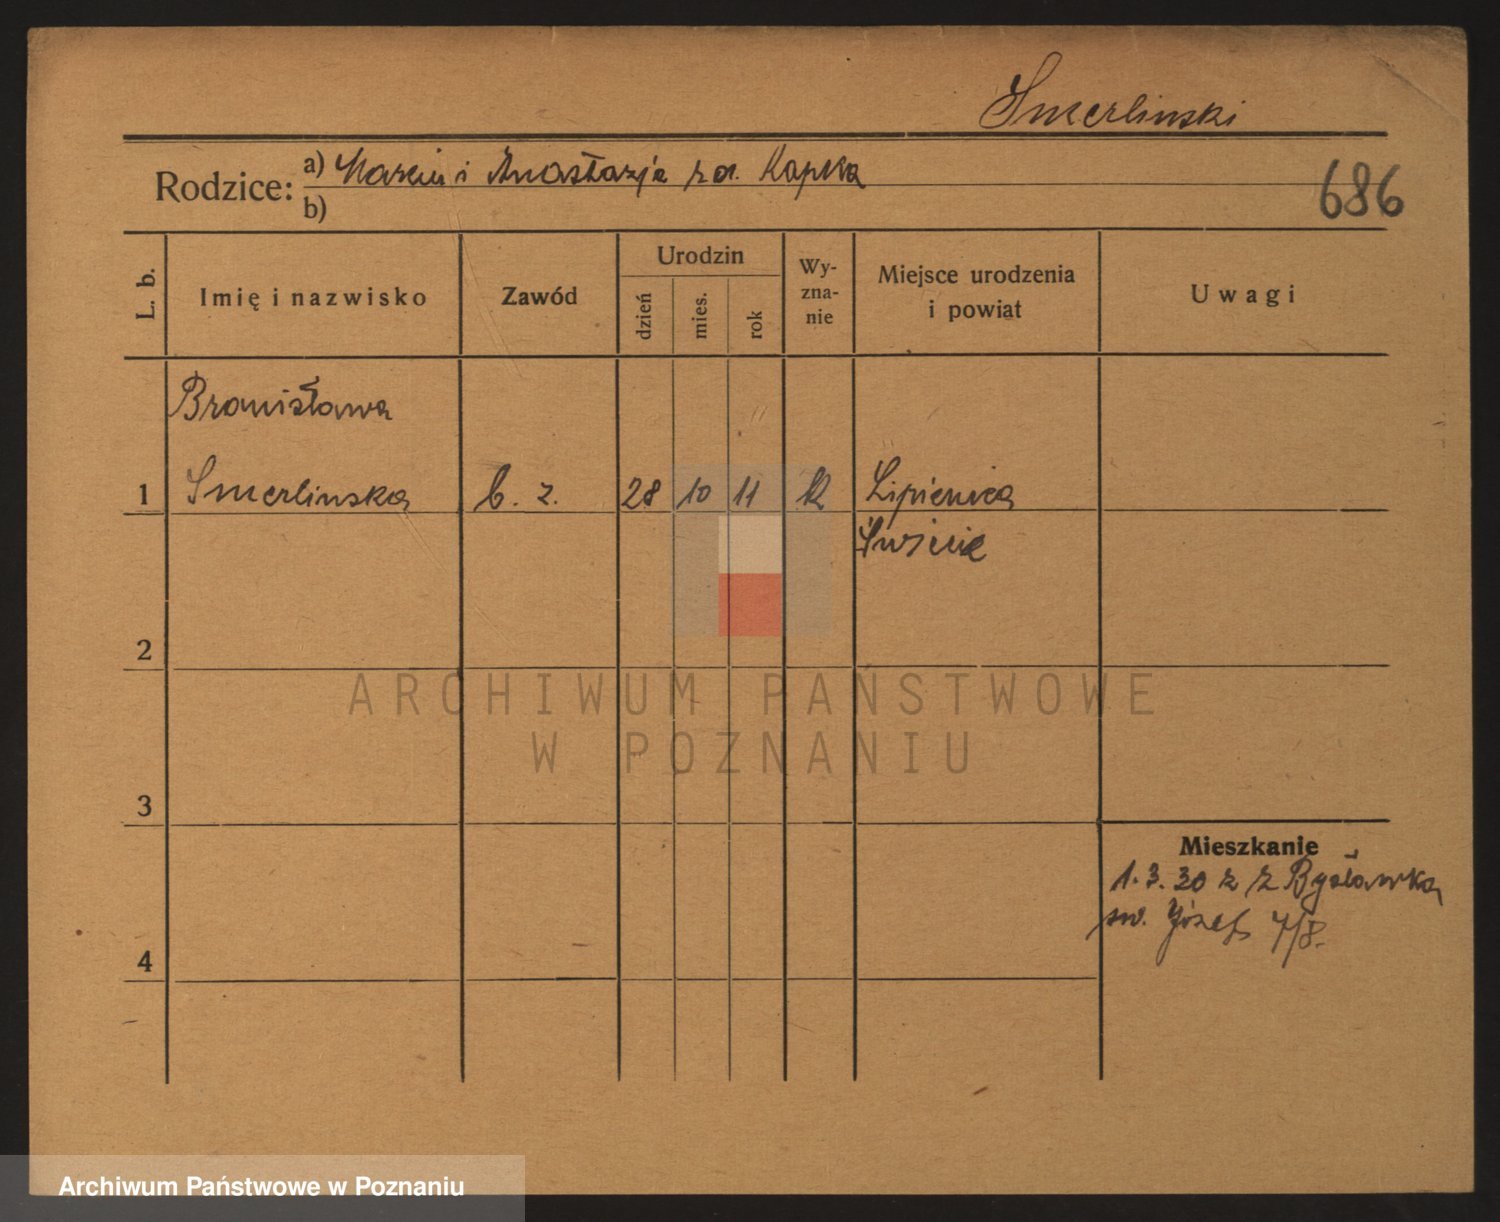 Smerlinski
Rodzice: a) Marcin i Anastazja za. Kapka
b)
686
L. b.
Imię i nazwisko
Zawód
Urodzin
dzień
mies.
rok
Wy-
zna-
nie
Miejsce urodzenia
i powiat
Uwagi
Bronisława
1 Smerlinska b. z. 28 10 11 k Lipienica
Świecie
2
3
4
Mieszkanie
1. 3. 30 z z Bysławka
św. Józefa 7/8.
ARCHIWUM PAŃSTWOWE
W POZNANIU
Archiwum Państwowe w Poznaniu